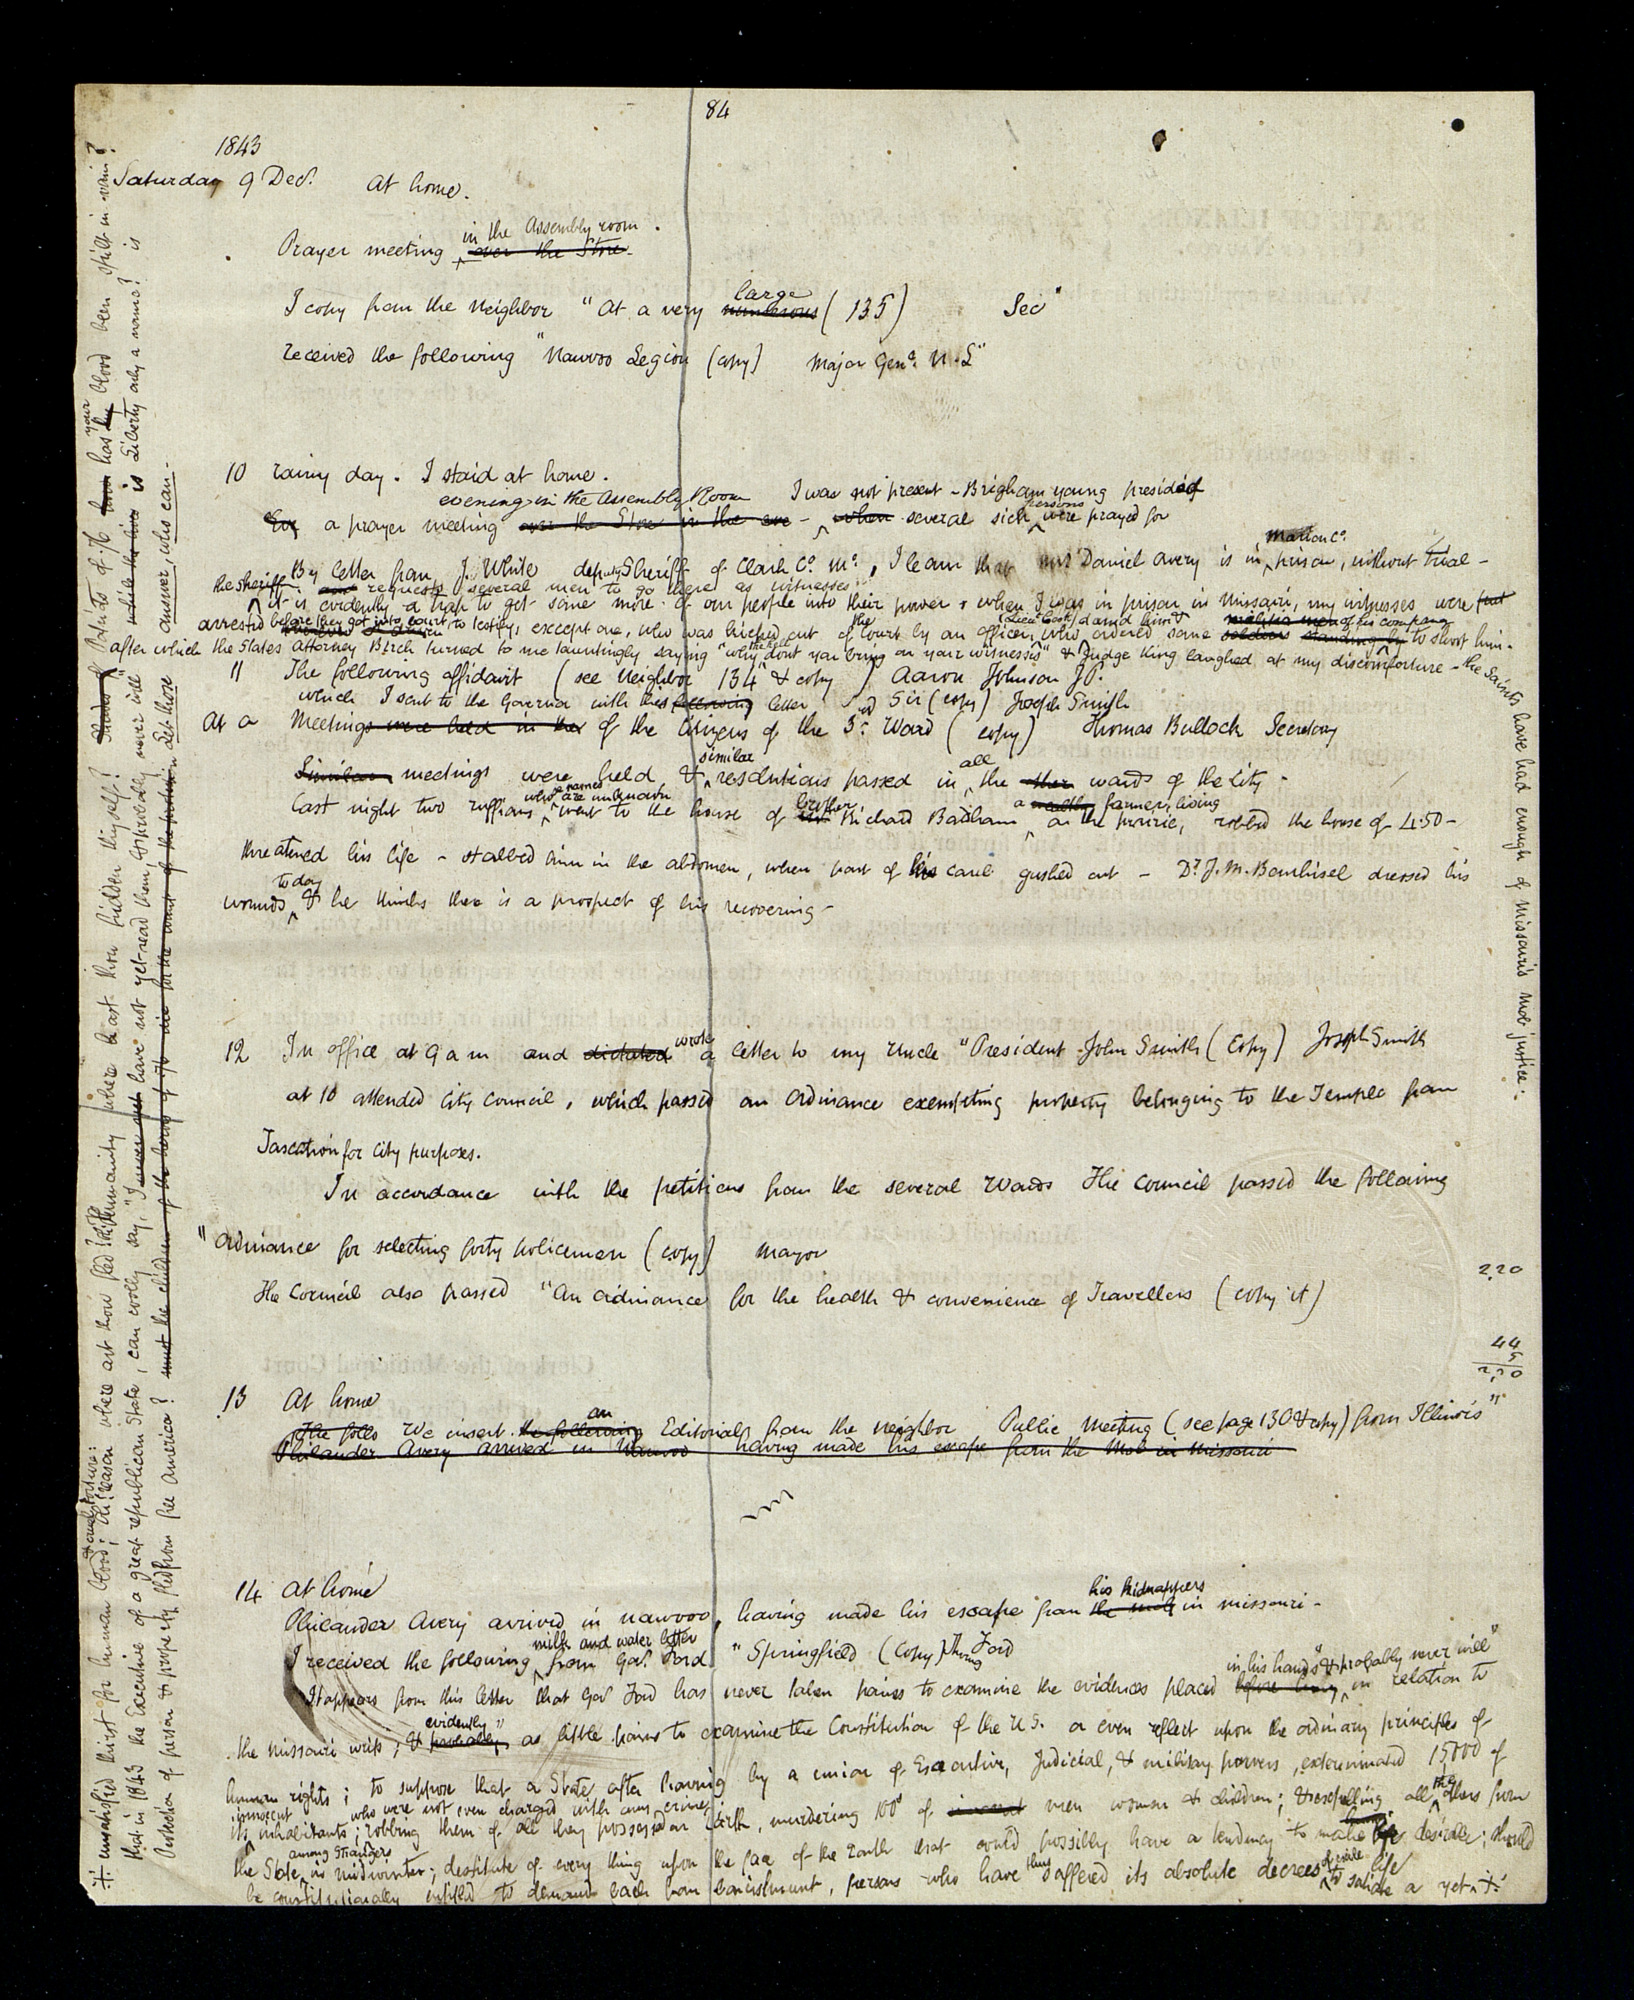 84
1843
Saturday 9 Decr. At home.
in the Assembly room.
Prayer meeting over the Store.
large
I copy from the Neighbor "At a very numerous (135) Sec"
received the following "Nauvoo Legion (copy) Major Genl. N. L"
10 rainy day. I staid at home.
evening in the Assembly Room I was not present - Brigham young presided
Eve a prayer meeting over the Store in the eve - when several sick persons were prayed for
Marion Co.
By letter from J. White deputy Sheriff of Clark Co. Mo., I learn that Mr Daniel Avery is in prison, without trial -
the sheriff and requests several men to go there as witnesses
it is evidently a trap to get some more of our people into their power & when I was in prison in Missouri, my witnesses were
arrested before they got into court to testify, except one, who was kicked out of the Court by an officer, Lieut Cook who damnd him & ordered some militia men of his company soldiers standing by to shoot him.
after which the States Attorney Birch turned to me tauntingly saying "why the hell dont you bring on your witnesses" & Judge King laughed at my discomforture - the Saints have had enough of Missouri's mob justice.
11 The following affidavit (see Neighbor 134 & copy) Aaron Johnson J.P.
which I sent to the Governor with this following letter Sir (copy) Joseph Smith
At a Meetings were held in the of the Citizens of the 3rd Ward (copy) Thomas Bullock Secretary
similar all
Similar meetings were held & resolutions passed in the other wards of the City -
whose names are unknown brother a wealthy farmer, living
Last night two ruffians went to the house of Richard Badham on the prairie, robbed the house of 4.50 -
threatened his life - stabbed him in the abdomen, when part of his caul gushed out - Dr J. M. Bernhisel dressed his
today
wounds & he thinks there is a prospect of his recovering -
12 In office at 9 am and dictated wrote a letter to my Uncle "President John Smith (Copy) Joseph Smith
at 10 attended City Council, which passed an Ordinance exempting property belonging to the Temple from
Taxation for City purposes.
In accordance with the petitions from the several Wards The Council passed the following
"Ordinance for selecting forty policemen (copy) Mayor
2.20
The Council also passed "An ordinance for the health & convenience of Travellers (copy it)
44
5
2.20
13 At home
an
The folls We insert the following Editorial from the Neighbor Public Meeting (see page 130 & copy) from Illinois"
Philander Avery arrived in Nauvoo having made his escape from the Mob in Missouri
14 At home
his kidnappers
Philander Avery arrived in Nauvoo, having made his escape from the mob in Missouri -
milk and water letter
I received the following from Gov. Ford. "Springfield (Copy) Thomas Ford
in his hands "& probably never will"
It appears from this letter that Gov Ford has never taken pains to examine the evidences placed before him, in relation to
evidently
the Missouri writs; & probably as little pains to examine the Constitution of the U.S. or even reflect upon the ordinary principles of
human rights; to suppose that a State after having by a union of Executive, Judicial, & military powers, exterminated 15000 of
innocent who were not even charged with any crime
its inhabitants; robbing them of all they possessed on Earth, murdering 100s of innocent men women & children; & expelling all the others from
among strangers
the State in midwinter; destitute of every thing upon the face of the Earth that could possibly have a tendency to make life desirable; should
be constitutionally entitled to demand back from banishment, persons who have thus suffered its absolute decrees of exile to satiate a yet +
+ unsatisfied thirst for human blood; & and torture: Oh! reason where art thou fled! Humanity where hast thou hidden thyself? Patriots of 76 has your blood been spilt in vain?
that in 1843 the Executive of a great republican State, can coolly say, "I never yet have not yet read them, & probably never will" is Liberty only a name? is
protection of person & property fled from free America? must the children of the heros of 76 die for the want of the protection Let those answer, who can -